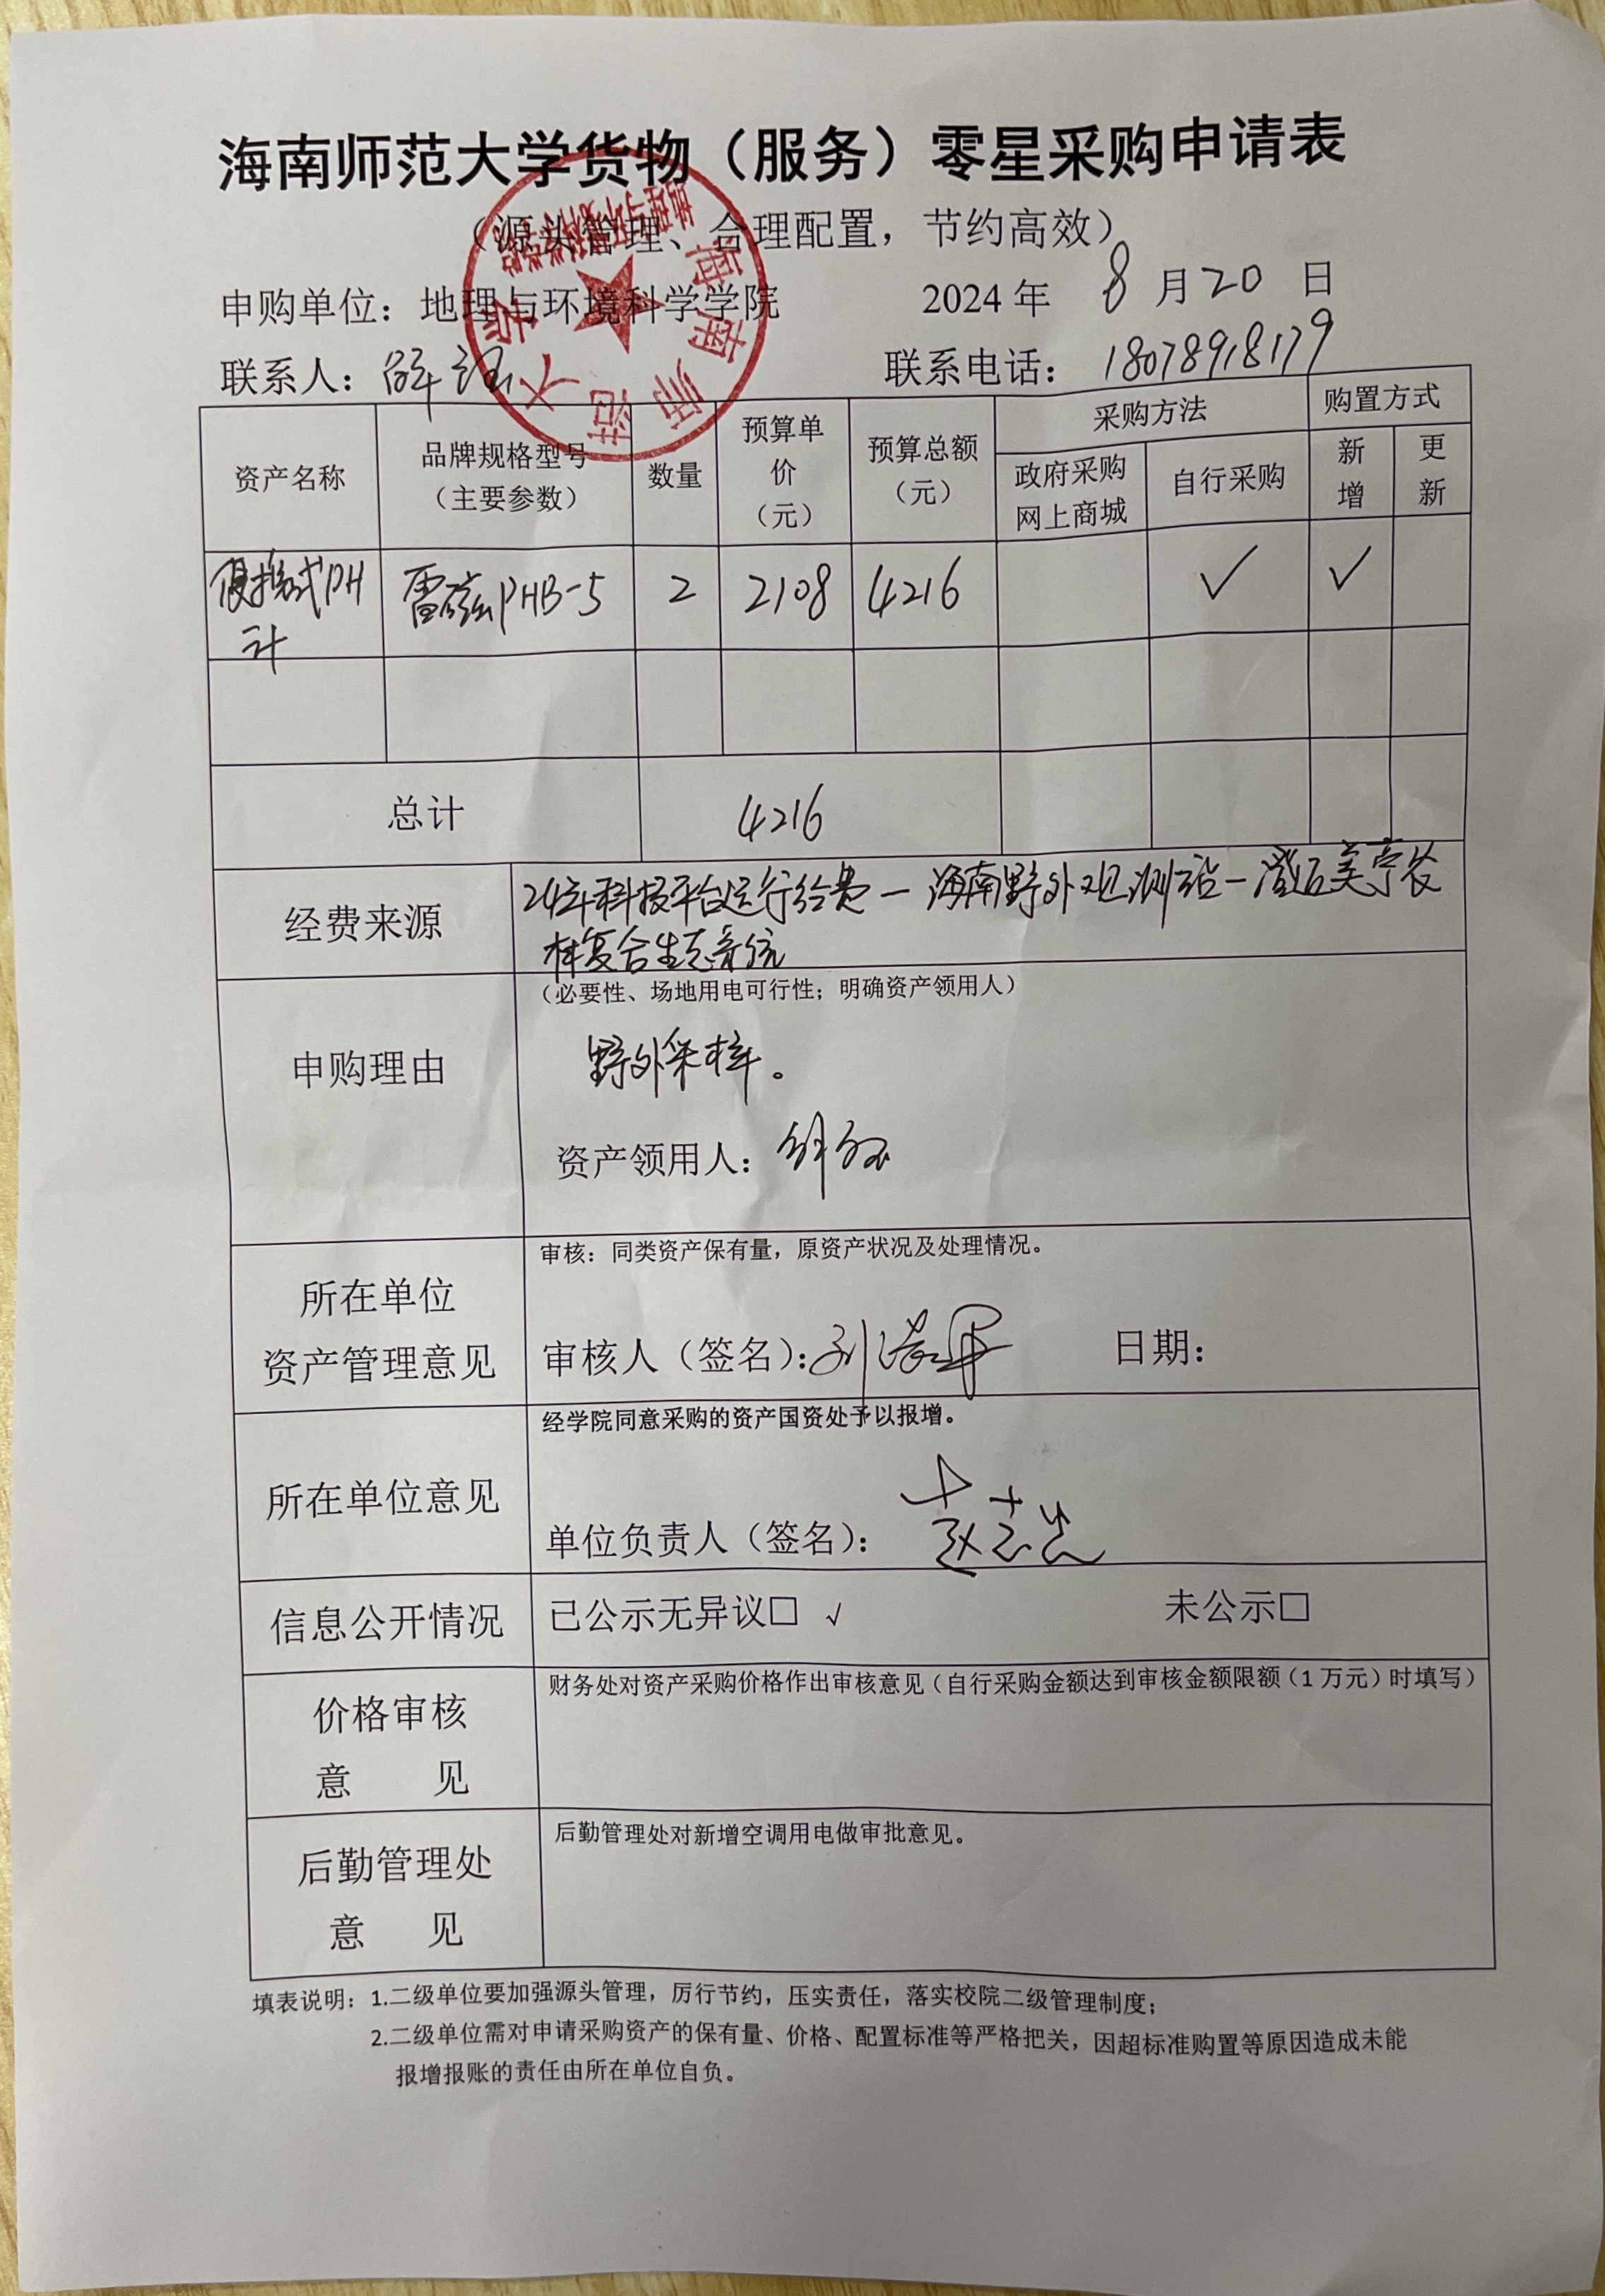 海南师范大学货物（服务）零星采购申请表
（源头管理、合理配置，节约高效）
申购单位：地理与环境科学学院 2024年 8月20日
联系人： 联系电话：18078918179
资产名称 品牌规格型号（主要参数） 数量 预算单价（元） 预算总额（元） 采购方法 政府采购网上商城 自行采购 购置方式 新增 更新
便携式PH计 雷磁PHB-5 2 2108 4216 ✓ ✓
总计 4216
经费来源 24年科技平台运行经费—海南野外观测站—澄迈美亭农
林复合生态系统
申购理由 （必要性、场地用电可行性；明确资产领用人）
野外采样。
资产领用人：
所在单位
资产管理意见
审核：同类资产保有量，原资产状况及处理情况。
审核人（签名）： 日期：
所在单位意见
经学院同意采购的资产国资处予以报增。
单位负责人（签名）：赵志忠
信息公开情况 已公示无异议□ √ 未公示□
价格审核
意 见
财务处对资产采购价格作出审核意见（自行采购金额达到审核金额限额（1万元）时填写）
后勤管理处
意 见
后勤管理处对新增空调用电做审批意见。
填表说明：1.二级单位要加强源头管理，厉行节约，压实责任，落实校院二级管理制度；
2.二级单位需对申请采购资产的保有量、价格、配置标准等严格把关，因超标准购置等原因造成未能
报增报账的责任由所在单位自负。
海南师范大学